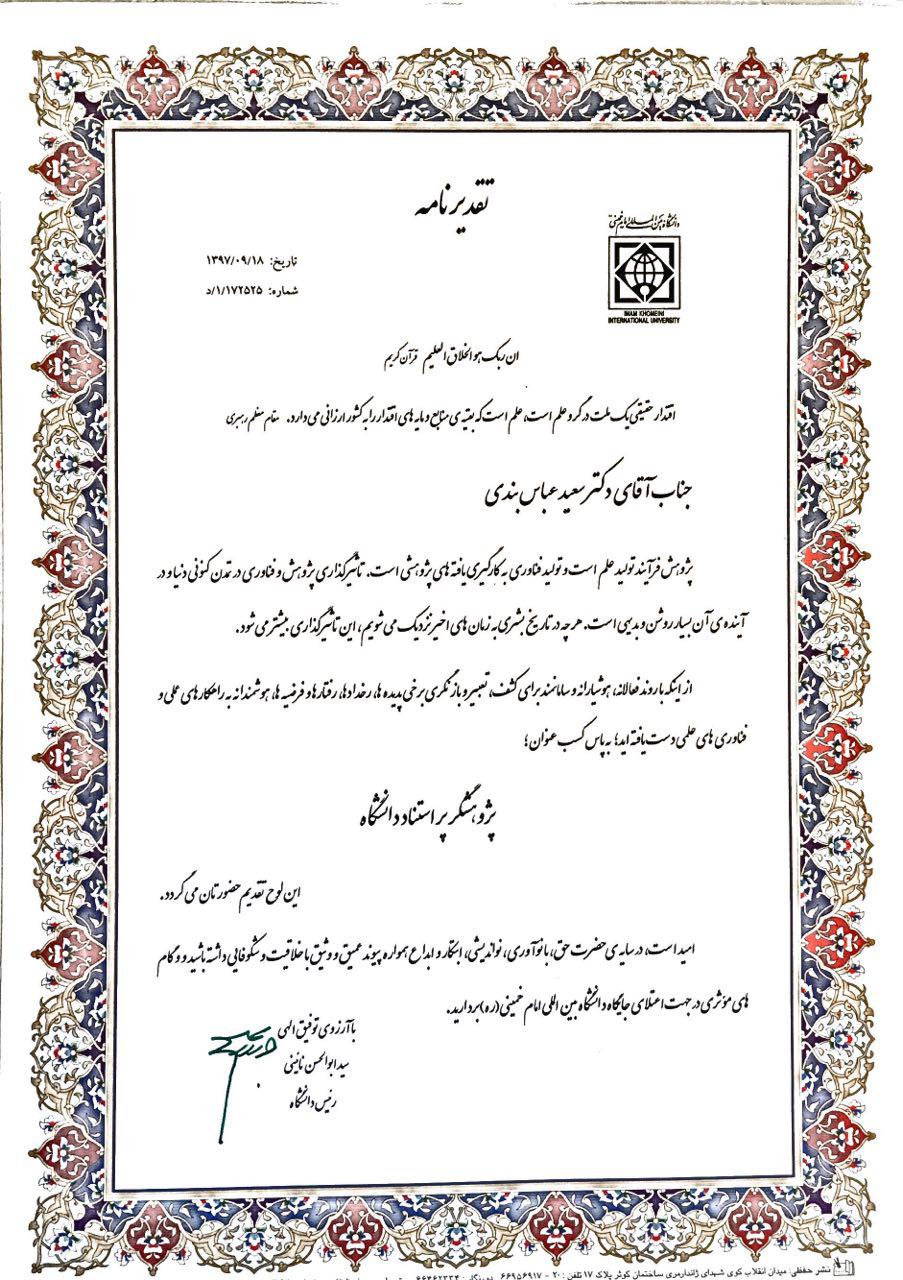 تقدیرنامه
دانشگاه بین المللی امام خمینی
IMAM KHOMEINI
INTERNATIONAL UNIVERSITY
تاریخ: ۱۳۹۷/۰۹/۱۸
شماره: ۱/۱۷۲۵۲۵/د
ان ربک هو الخلاق العلیم قرآن کریم
اقتدار حقیقی یک ملت در گرو علم است، علم است که بقیه ی منابع و مایه های اقتدار را به کشور ارزانی می دارد. مقام معظم رهبری
جناب آقای دکتر سعید عباس بندی
پژوهش فرآیند تولید علم است و تولید فناوری به کارگیری یافته های پژوهشی است. تأثیرگذاری پژوهش و فناوری در تمدن کنونی دنیا و در
آینده ی آن بسیار روشن و بدیهی است. هر چه در تاریخ بشری به زمان های اخیر نزدیک می شویم، این تأثیرگذاری بیشتر می شود.
از اینکه با روند فعالانه، هوشیارانه و سامانمند برای کشف، تعبیر و بازنگری برخی پدیده ها، رخدادها، رفتارها و فرضیه ها، هوشمندانه به راهکارهای عملی و
فناوری های علمی دست یافته اید؛ به پاس کسب عنوان؛
پژوهشگر پر استناد دانشگاه
این لوح تقدیم حضورتان می گردد.
امید است، در سایه ی حضرت حق، با نوآوری، نواندیشی، ابتکار و ابداع همواره پیوند عمیق و وثیق با خلاقیت و شکوفایی داشته باشید و و گام
های مؤثری در جهت اعتلای جایگاه دانشگاه بین المللی امام خمینی (ره) بردارید.
با آرزوی توفیق الهی
سید ابوالحسن نائینی
رئیس دانشگاه
نشر حفظی: میدان انقلاب کوی شهدای ژاندارمری ساختمان کوثر پلاک ۱۷ تلفن: ۲۰ - ۶۶۹۵۶۹۱۷